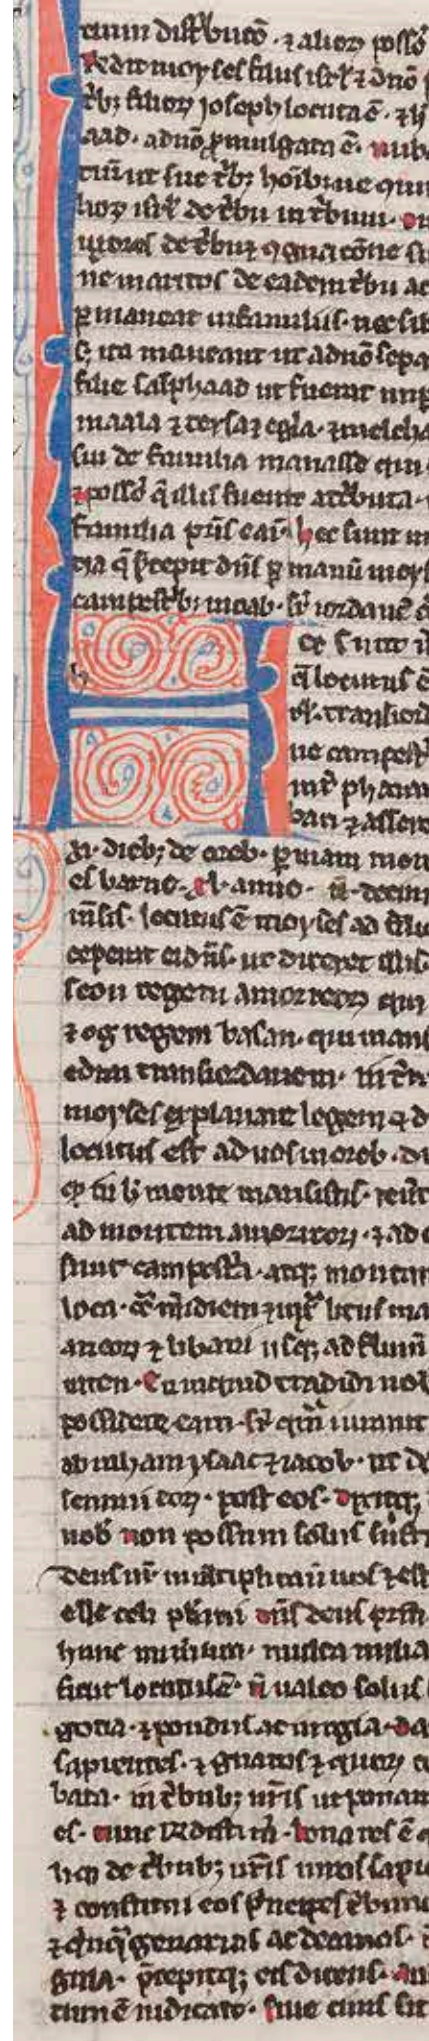 tium distbuco. ⁊ alior posso
Redit moyses filiis isrl ⁊ dno
tb; filior ioseph locuta e. ⁊ h
aad. a dno pmulgata e. nub
tm ut sue tb; hoib; ne qm
lior isrl de tbu in tbum. o
uxores de tbu ⁊ ognacone su
ne maritos de eadem tbu ac
pmaneat in familiis. nec sib
s; ita maneant ut a dno sepa
filie salphaad ut fuerat imp
maala ⁊ tersa ⁊ egla. ⁊ melcha
sui de familia manasse qui
⁊ posso q illis fuerat attbuta.
familia pris ear. hec sunt m
cia q pcepit dns p manu moys
campestb; moab. sr iordane
H ec sunt
q locutus e
rl. transiord
ne campest
int phara
ban ⁊ asero
xi. dieb; de oreb. p uiam mon
es barne. xl. anno. u. decim
msis. locutus e moyses ad filio
ceperat ei dns. ut diceret illis.
seon regem amorreor qui
⁊ og regem basan. qui mans
edrai transiordanem. in tra
moyses explanare legem ⁊ d
locutus est ad nos in oreb. di
qd in h monte mansistis. reut
ad montem amorreor. ⁊ ad
sunt campestia. atq; montan
loca. ct midiem ⁊ iux litus ma
aneor ⁊ libani usq; ad flumi
aten. En inquid tradidi nob
possidete eam. sr qm iurauit
abraham ysaac ⁊ iacob. ut da
semini eor. post eos. dixitq;
nob non possum solus susti
deus ur multiplicauit uos ⁊ est
esse celi plimi dns deus patr
hunc numum. multa milia
sicut locutus e. n ualeo solus
gocia. ⁊ pondus ac iurgia. da
sapientes. ⁊ gnaros ⁊ quor co
bata. in tbub; uris ut ponam
es. tunc rndistis m. bona res e
liq; de tbub; uris uiros sapie
⁊ constitui eos pncipes tbunos
⁊ qnqgenarios ac decanos.
gula. pcepiq; eis dicens. au
tum e iudicate. siue ciuis sit